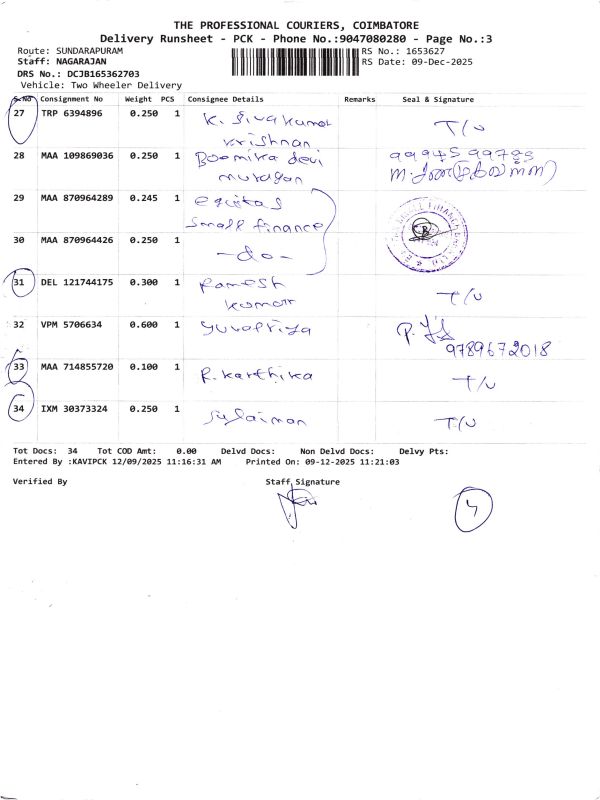 THE PROFESSIONAL COURIERS, COIMBATORE
Delivery Runsheet - PCK - Phone No.:9047080280 - Page No.:3
Route: SUNDARAPURAM RS No.: 1653627
Staff: NAGARAJAN RS Date: 09-Dec-2025
DRS No.: DCJB165362703
Vehicle: Two Wheeler Delivery
S.No Consignment No Weight PCS Consignee Details Remarks Seal & Signature
27 TRP 6394896 0.250 1 K. Sivakumar T/U
Krishnan
28 MAA 109869036 0.250 1 Boomika devi 99945 99795
murugan M.
29 MAA 870964289 0.245 1 equitas
small finance
30 MAA 870964426 0.250 1 -do-
31 DEL 121744175 0.300 1 Ramesh T/U
kumar
32 VPM 5706634 0.600 1 yuvapriya P.
9789672018
33 MAA 714855720 0.100 1 R. Karthika T/U
34 IXM 30373324 0.250 1 Sulaiman T/U
Tot Docs: 34 Tot COD Amt: 0.00 Delvd Docs: Non Delvd Docs: Delvy Pts:
Entered By :KAVIPCK 12/09/2025 11:16:31 AM Printed On: 09-12-2025 11:21:03
Verified By Staff Signature